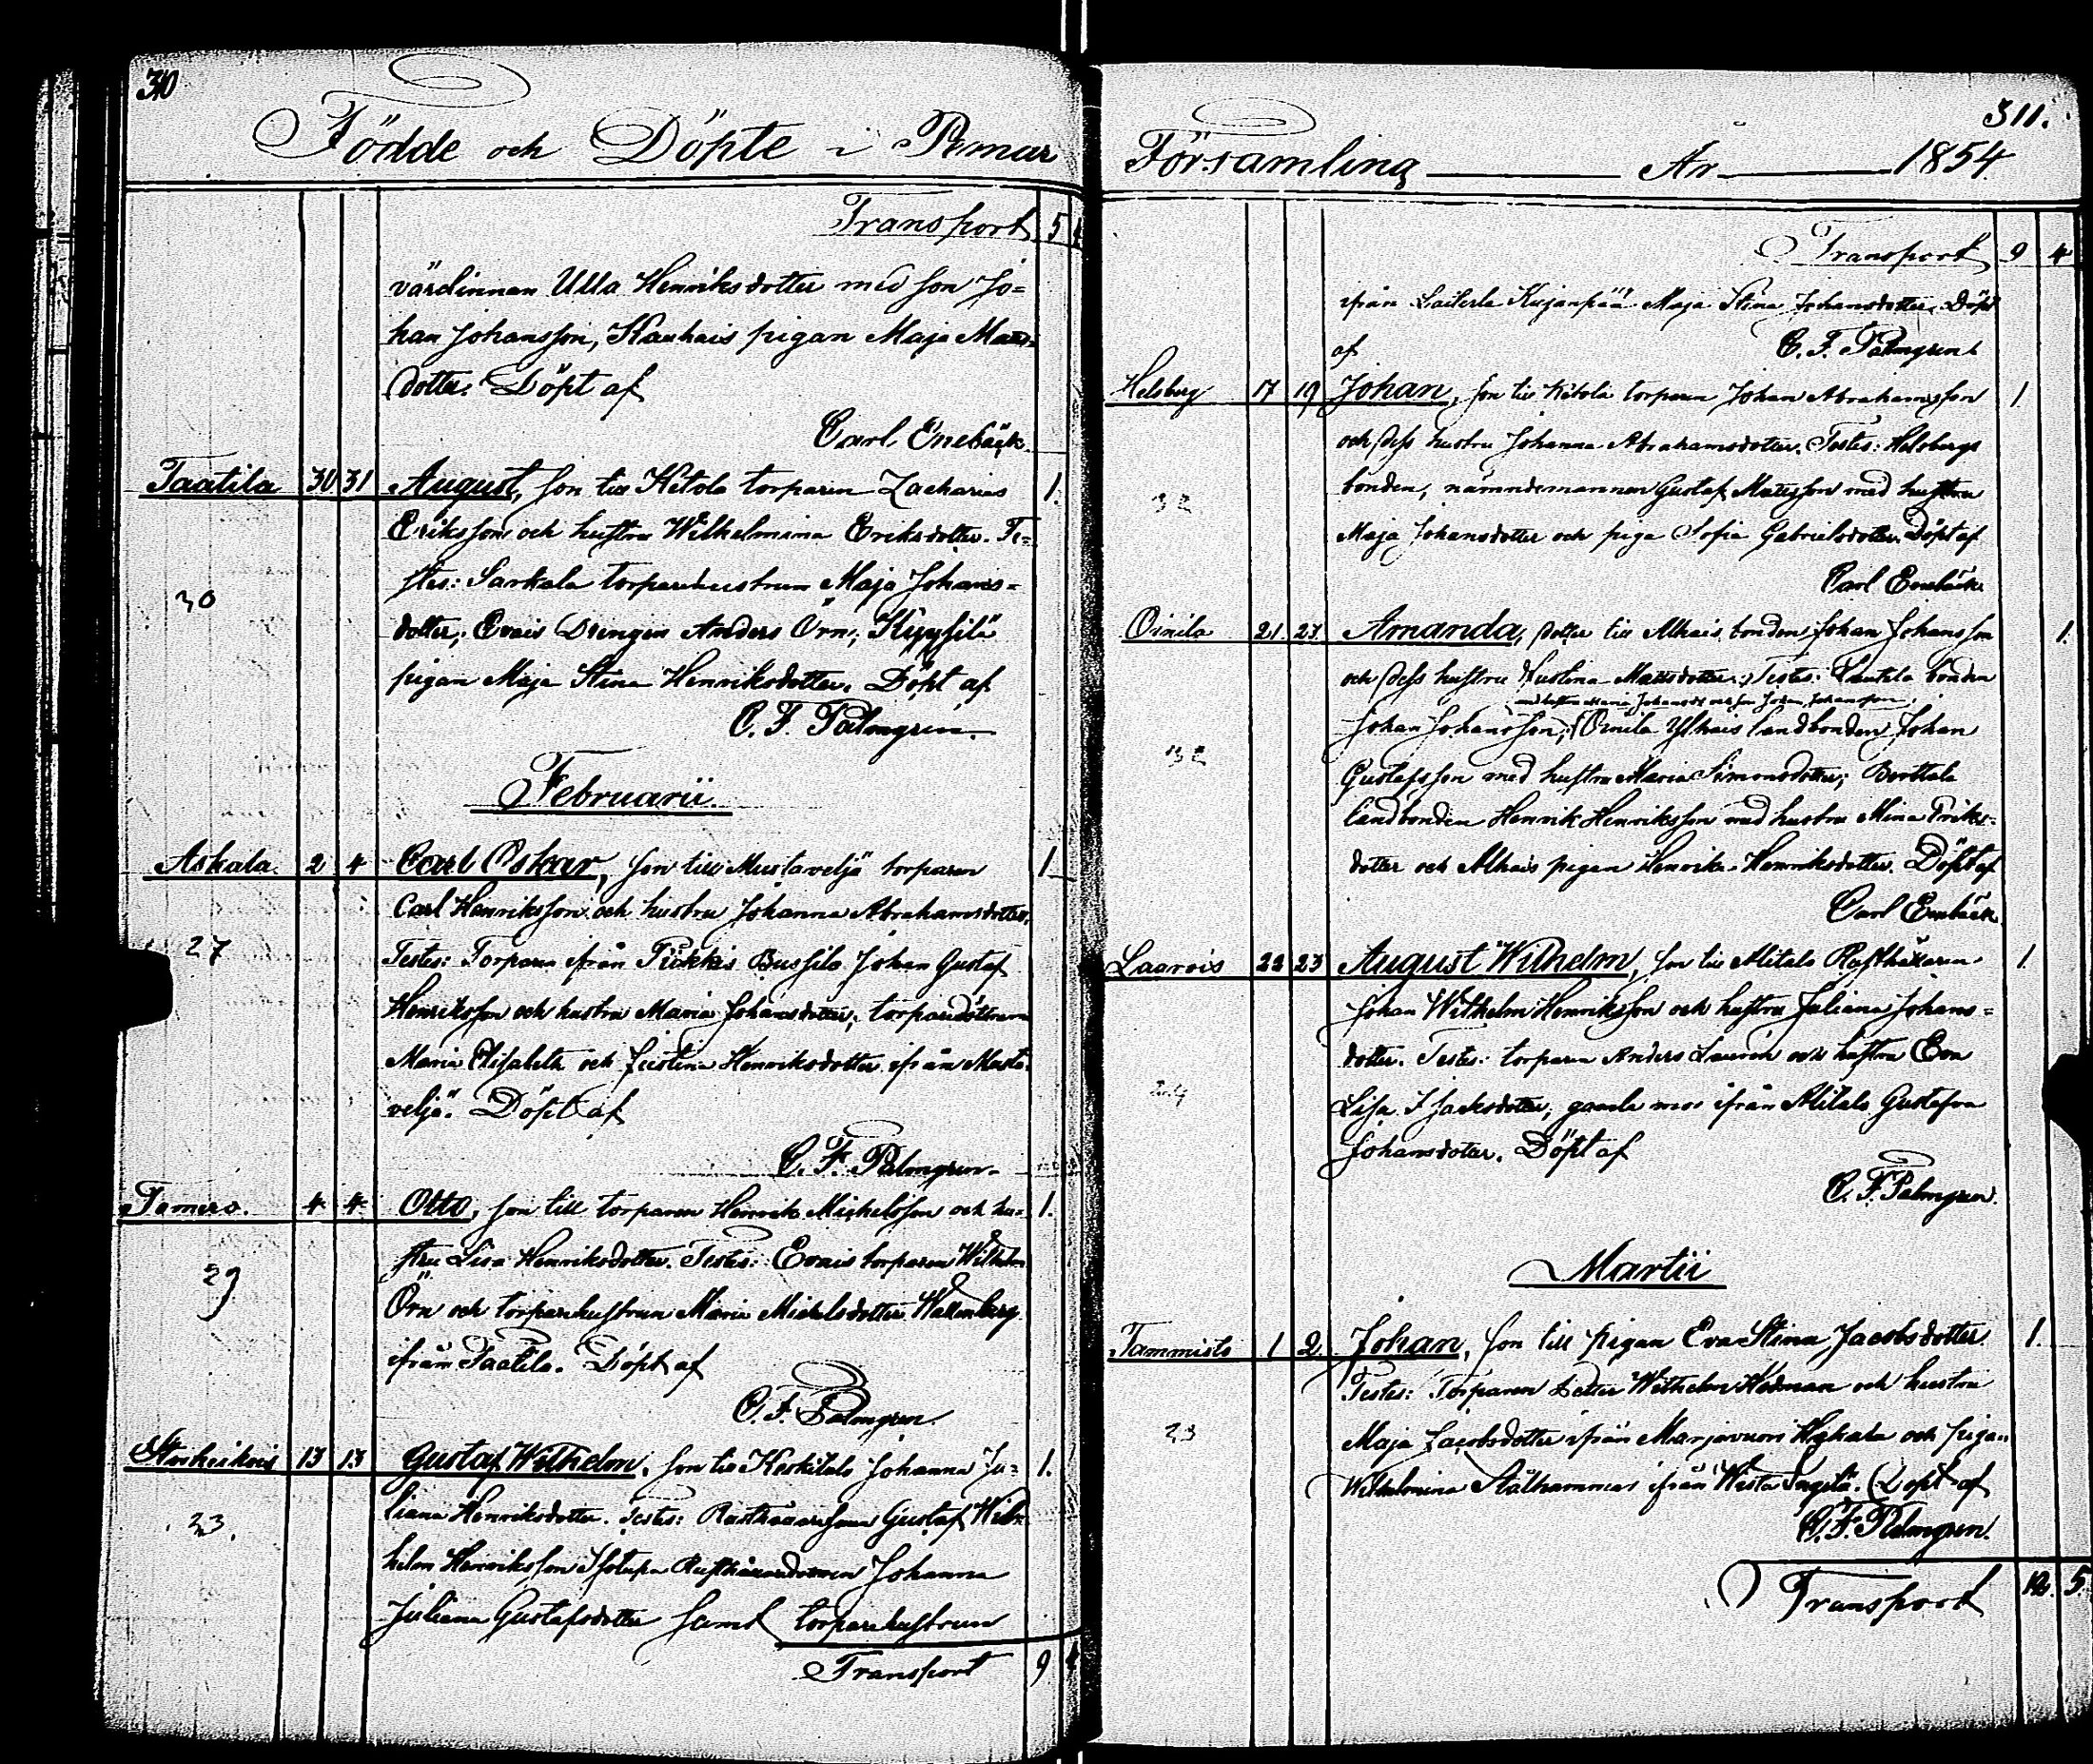 310
Födde och Döpte i Pemar
Transport 5
värdinnan Ulla Henriksdotter med son Jo=
han Johansson, Kauhais pigan Maja Matts=
dotter. Döpt af
Carl Enebäck.
Taatila 30 31 August, son till Kitola torparen Zacharias 1.
Eriksson och hustru Wilhelmina Eriksdotter. Te=
30
stes: Sarkala torparehustrun Maja Johans=
dotter, Evais Drengen Anders Örn,
pigan Maja Stina Henriksdotter. Döpt af
C. F. Palmgren.
Februarii.
Askala 2 4 Carl Oskar, son till Mustaveljä torparen 1
Carl Henriksson och hustru Johanna Abrahamsdotter.
27
Testes: Torparen från Pickkis Johan Gustaf
Henriksson och hustru Maria Johansdotter, torparedöttrarna
Maria Elisabeth och Justina Henriksdotter ifrån Musta=
veljä. Döpt af
C. F. Palmgren.
4 4 Otto, son till torparen Henrik Michelsson och hu= 1.
stru Lisa Henriksdotter. Testes: Evais torparen Wilhelm
29
Örn och torparehustrun Maria Michelsdotter Wallenberg
ifrån Taatila. Döpt af
C. F. Palmgren.
13 13 Gustaf Wilhelm, son till Keskitalo Johanna Ju= 1.
liana Henriksdotter. Testes: Rusthållaresonen Gustaf Wil=
23.
helm Henriksson Isotupa Rusthållaredottren Johanna
Juliana Gustafsdotter samt torparehustrun
Transport 9
311.
Församling År 1854
Transport 9 4
ifrån Kujanpää Maja Stina Johansdotter. Döpt
af C. F. Palmgren.
Helsberg 17 19 Johan, son till Kitola torparen Johan Abrahamsson 1.
och dess hustru Johanna Abrahamsdotter. Testes: Helsbergs
32
bonden, nämndemannen Gustaf Mattsson med hustru
Maja Johansdotter och piga Sofia Gabrielsdotter. Döpt af
Carl Enebäck.
Oinila 21 23 Amanda, dotter till Alhais bonden Johan Johansson 1.
och dess hustru Justina Mattsdotter; Testes: bonden
med hustru Maria Johansdr och son Johan Johansson
Johan Johansson; Oinila Ylhais landbonden Johan
32
Gustafsson med hustru Maria Simonsdotter;
landbonden Henrik Henriksson med hustru Mina Eriks=
dotter och Alhais pigan Henrika Henriksdotter. Döpt af
Carl Enebäck.
Laarois 22 23 August Wilhelm, son till Alitalo Rusthållaren 1.
Johan Wilhelm Henriksson och hustru Juliana Johans=
dotter. Testes: torparen Anders och hustru Eva
24
Lisa Isacksdotter, gamla mor ifrån Alitalo Gustafva
Johansdotter. Döpt af
C. F. Palmgren.
Martii
Tammisto 1 2 Johan, son till pigan Eva Stina Jacobsdotter. 1.
Testes: Torparen Wilhelm Hedman och hustru
23
Maja Jacobsdotter ifrån Marjavuori och pigan
Wilhelmina Stålhammar ifrån Wista Ingilä. Döpt af
C. F. Palmgren.
Transport 12. 5.